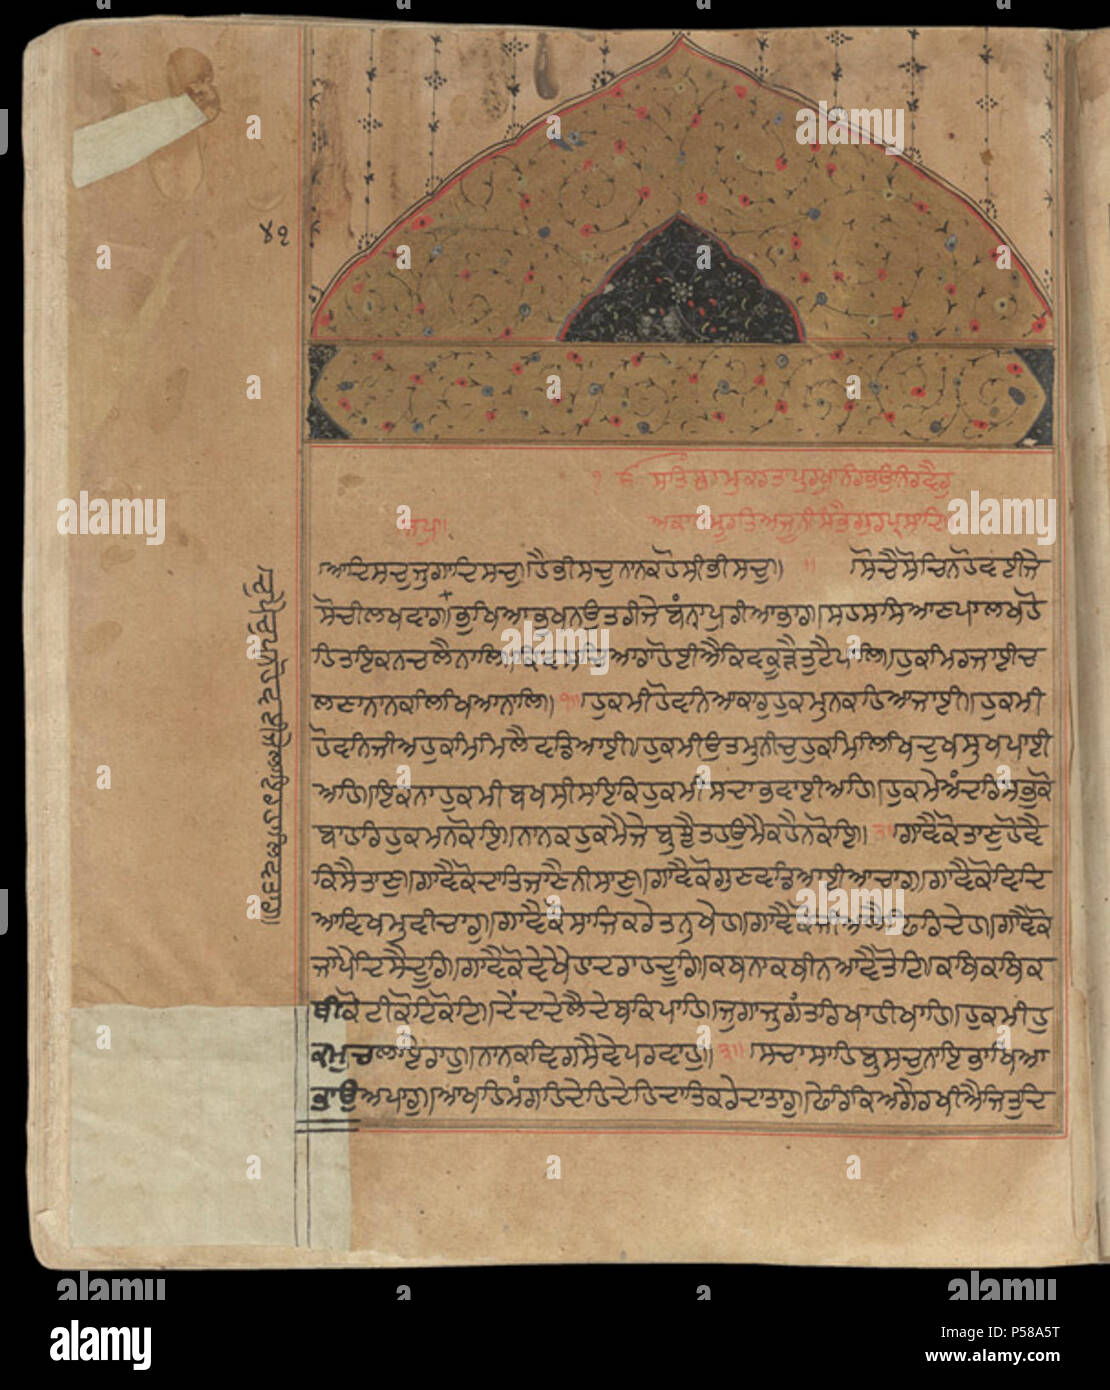 ੪੧
ੴ ਸਤਿ ਨਾਮੁ ਕਰਤਾ ਪੁਰਖੁ ਨਿਰਭਉ ਨਿਰਵੈਰੁ
ਅਕਾਲ ਮੂਰਤਿ ਅਜੂਨੀ ਸੈਭੰ ਗੁਰਪ੍ਰਸਾਦਿ॥
ਜਪੁ॥
ਆਦਿਸਚੁਜੁਗਾਦਿਸਚੁ॥ਹੈਭੀਸਚੁਨਾਨਕਹੋਸੀਭੀਸਚੁ॥ ॥ ਸੋਚੈਸੋਚਿਨਹੋਵਈਜੇ
ਸੋਚੀਲਖਵਾਰ॥ਭੁਖਿਆਭੁਖਨਉਤਰੀਜੇਬੰਨਾਪੁਰੀਆਭਾਰ॥ਸਹਸਸਿਆਣਪਾਲਖਹੋ
ਹਿਤਾਇਕਨਚਲੈਨਾਲਿ॥ਕਿਵਸਚਿਆਰਾਹੋਈਐਕਿਵਕੂੜੈਤੁਟੈਪਾਲਿ॥ਹੁਕਮਿਰਜਾਈਚ
ਲਣਾਨਾਨਕਲਿਖਿਆਨਾਲਿ॥੧॥ਹੁਕਮੀਹੋਵਨਿਆਕਾਰਹੁਕਮੁਨਕਹਿਆਜਾਈ॥ਹੁਕਮੀ
ਹੋਵਨਿਜੀਅਹੁਕਮਿਮਿਲੈਵਡਿਆਈ॥ਹੁਕਮੀਉਤਮੁਨੀਚੁਹੁਕਮਿਲਿਖਿਦੁਖਸੁਖਪਾਈ
ਅਹਿ॥ਇਕਨਾਹੁਕਮੀਬਖਸੀਸਇਕਿਹੁਕਮੀਸਦਾਭਵਾਈਅਹਿ॥ਹੁਕਮੈਅੰਦਰਿਸਭੁਕੋ
ਬਾਹਰਿਹੁਕਮਨਕੋਇ॥ਨਾਨਕਹੁਕਮੈਜੇਬੁਝੈਤਹਉਮੈਕਹੈਨਕੋਇ॥੨॥ਗਾਵੈਕੋਤਾਣੁਹੋਵੈ
ਕਿਸੈਤਾਣੁ॥ਗਾਵੈਕੋਦਾਤਿਜਾਣੈਨੀਸਾਣੁ॥ਗਾਵੈਕੋਗੁਣਵਡਿਆਈਆਚਾਰ॥ਗਾਵੈਕੋਵਿਦਿ
ਆਵਿਖਮੁਵੀਚਾਰੁ॥ਗਾਵੈਕੋਸਾਜਿਕਰੇਤਨੁਖੇਹ॥ਗਾਵੈਕੋਜੀਅਲੈਫਿਰਿਦੇਹ॥ਗਾਵੈਕੋ
ਜਾਪੈਦਿਸੈਦੂਰਿ॥ਗਾਵੈਕੋਵੇਖੈਹਾਦਰਾਹਦੂਰਿ॥ਕਥਨਾਕਥੀਨਆਵੈਤੋਟਿ॥ਕਥਿਕਥਿਕ
ਥੀਕੋਟੀਕੋਟਿਕੋਟਿ॥ਦੇਂਦਾਦੇਲੈਦੇਥਕਿਪਾਹਿ॥ਜੁਗਾਜੁਗੰਤਰਿਖਾਹੀਖਾਹਿ॥ਹੁਕਮੀਹੁ
ਕਮੁਚਲਾਏਰਾਹੁ॥ਨਾਨਕਵਿਗਸੈਵੇਪਰਵਾਹੁ॥੩॥ਸਾਚਾਸਾਹਿਬੁਸਚੁਨਾਇਭਾਖਿਆ
ਭਾਉਅਪਾਰੁ॥ਆਖਹਿਮੰਗਹਿਦੇਹਿਦੇਹਿਦਾਤਿਕਰੇਦਾਤਾਰੁ॥ਫੇਰਿਕਿਅਗੈਰਖੀਐਜਿਤੁਦਿ
alamy
Image ID: P58A5T
www.alamy.com